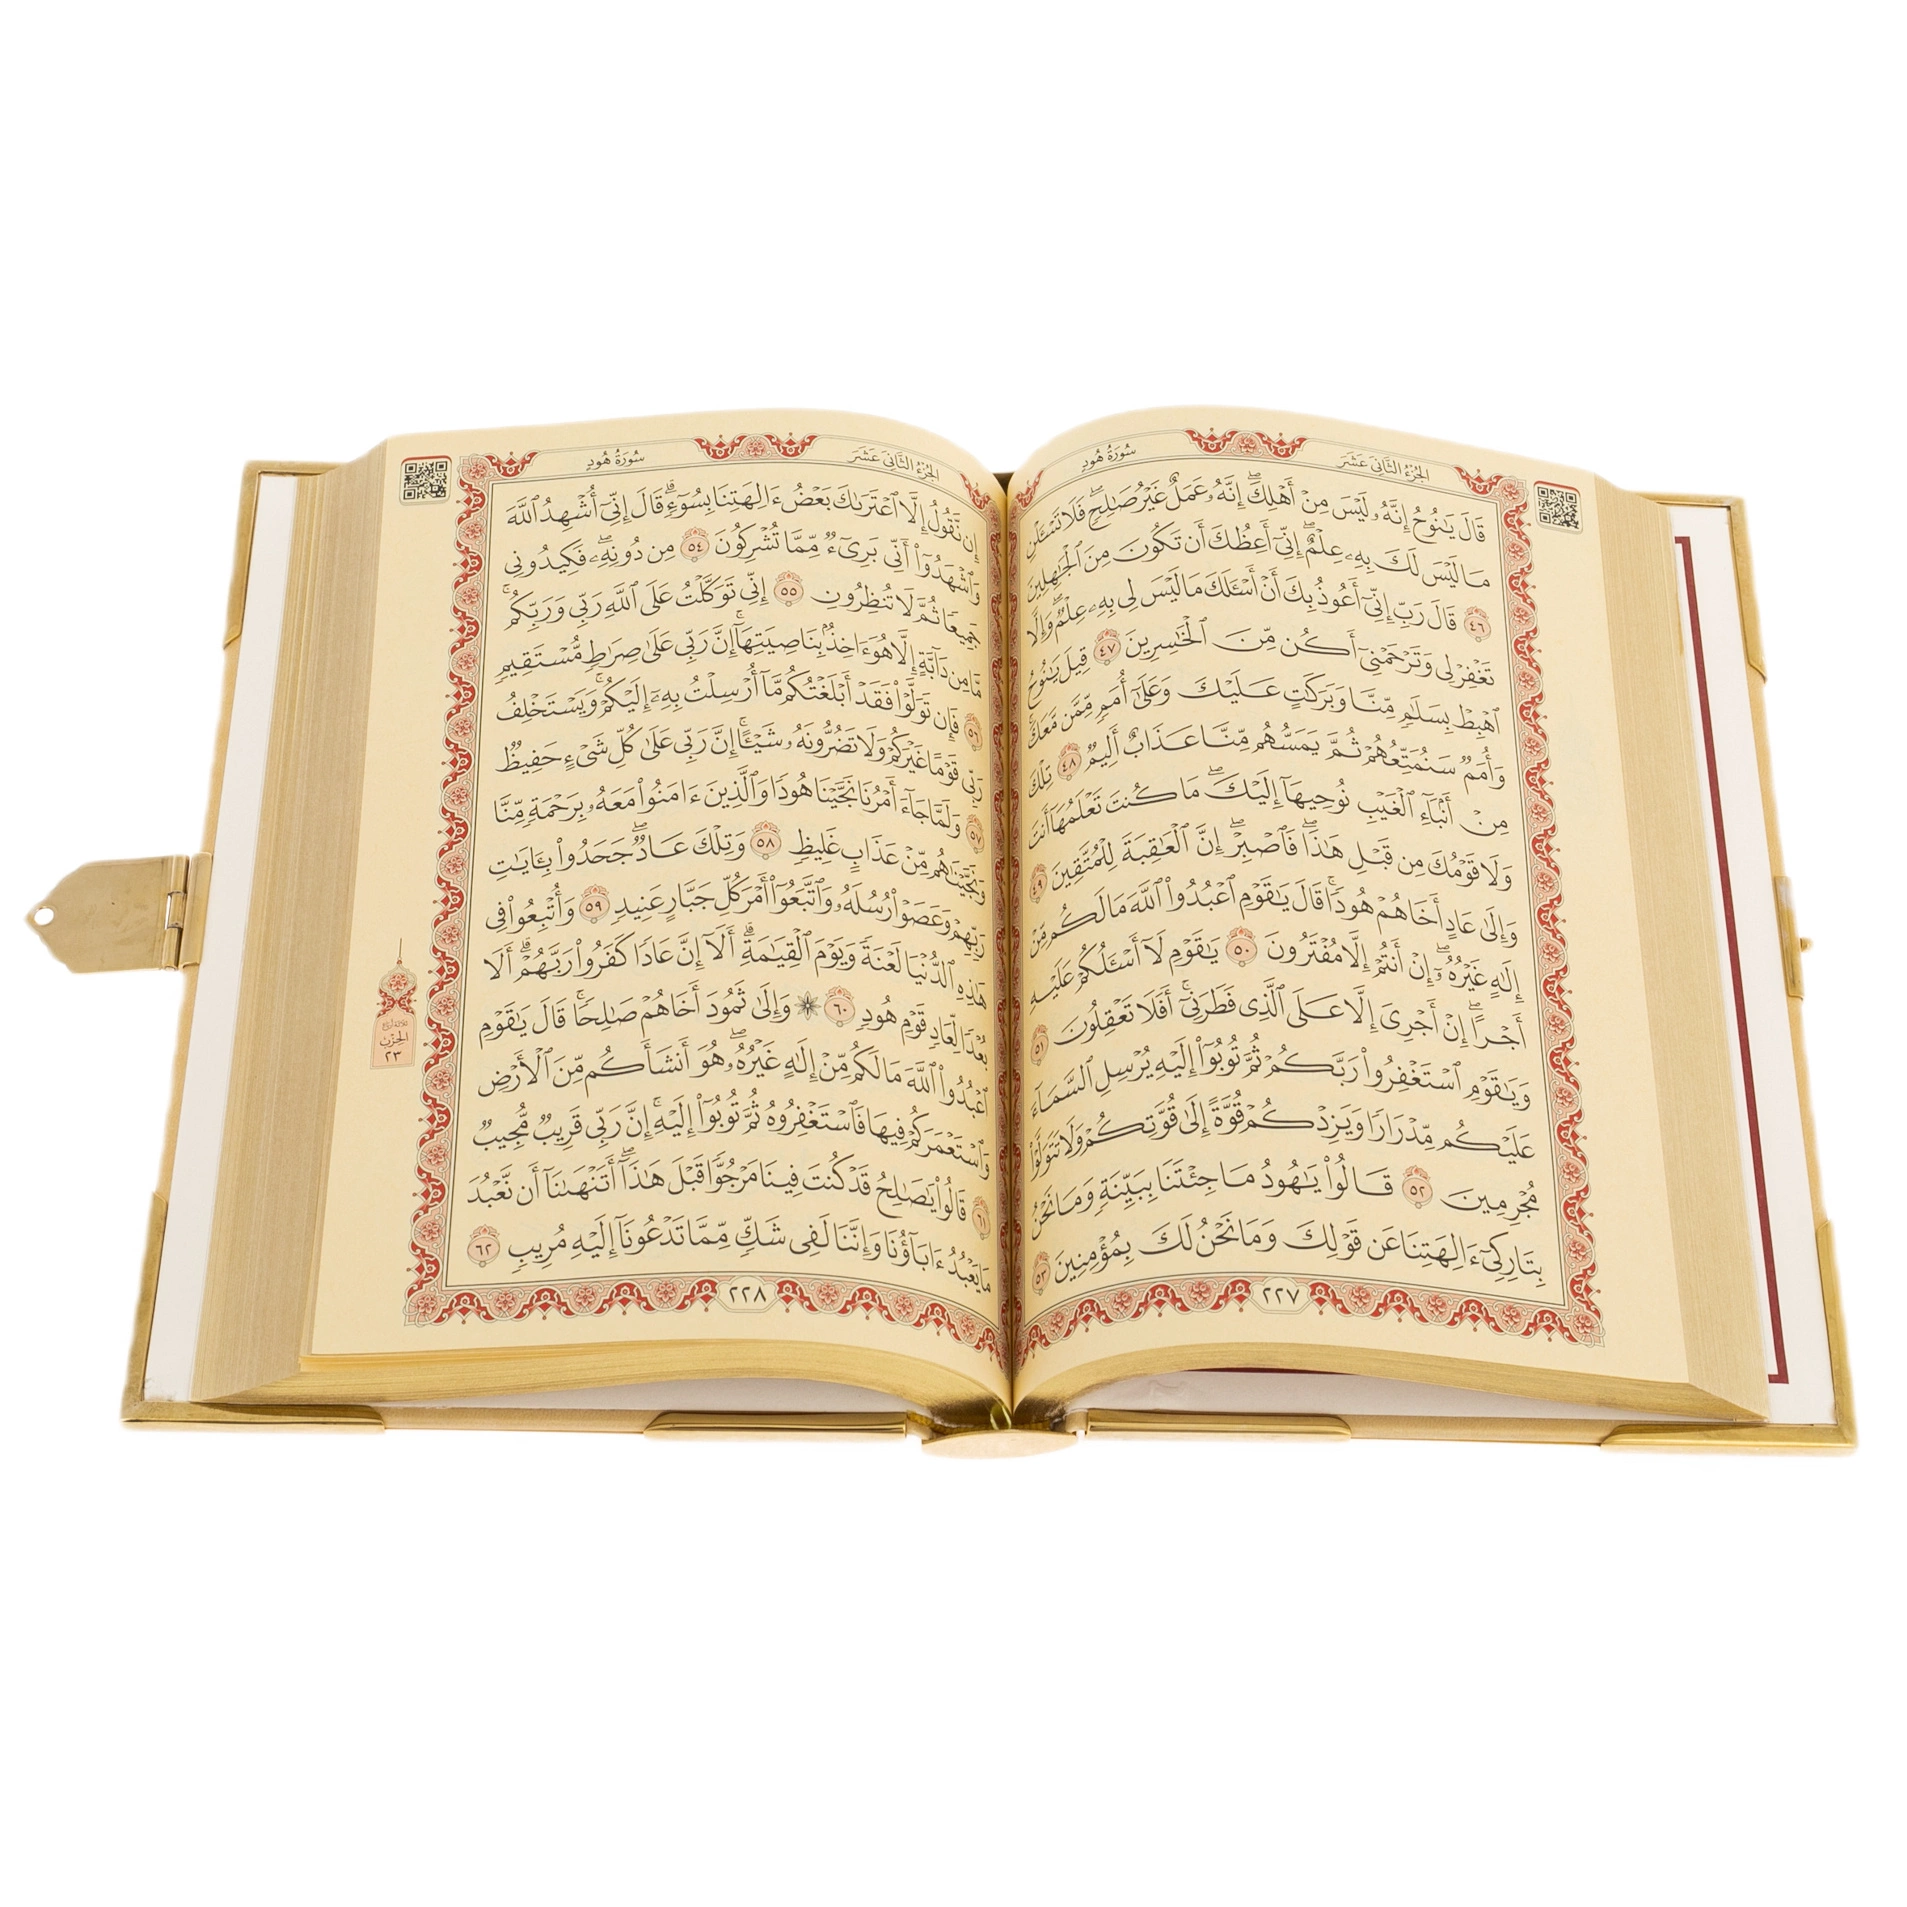 الجُزْءُ الثَّانِي عَشَرَ
سُورَةُ هُودٍ
قَالَ يَٰنُوحُ إِنَّهُۥ لَيْسَ مِنْ أَهْلِكَۖ إِنَّهُۥ عَمَلٌ غَيْرُ صَٰلِحٖۖ فَلَا تَسْـَٔلْنِ
مَا لَيْسَ لَكَ بِهِۦ عِلْمٌۖ إِنِّيٓ أَعِظُكَ أَن تَكُونَ مِنَ ٱلْجَٰهِلِينَ
٤٦ قَالَ رَبِّ إِنِّيٓ أَعُوذُ بِكَ أَنْ أَسْـَٔلَكَ مَا لَيْسَ لِي بِهِۦ عِلْمٌۖ وَإِلَّا
تَغْفِرْ لِي وَتَرْحَمْنِيٓ أَكُن مِّنَ ٱلْخَٰسِرِينَ ٤٧ قِيلَ يَٰنُوحُ
ٱهْبِطْ بِسَلَٰمٍ مِّنَّا وَبَرَكَٰتٍ عَلَيْكَ وَعَلَىٰٓ أُمَمٍ مِّمَّن مَّعَكَۚ
وَأُمَمٌ سَنُمَتِّعُهُمْ ثُمَّ يَمَسُّهُم مِّنَّا عَذَابٌ أَلِيمٌ ٤٨ تِلْكَ
مِنْ أَنۢبَآءِ ٱلْغَيْبِ نُوحِيهَآ إِلَيْكَۖ مَا كُنتَ تَعْلَمُهَآ أَنتَ
وَلَا قَوْمُكَ مِن قَبْلِ هَٰذَاۖ فَٱصْبِرْۖ إِنَّ ٱلْعَٰقِبَةَ لِلْمُتَّقِينَ ٤٩
وَإِلَىٰ عَادٍ أَخَاهُمْ هُودًاۚ قَالَ يَٰقَوْمِ ٱعْبُدُوا۟ ٱللَّهَ مَا لَكُم مِّنْ
إِلَٰهٍ غَيْرُهُۥٓۖ إِنْ أَنتُمْ إِلَّا مُفْتَرُونَ ٥٠ يَٰقَوْمِ لَآ أَسْـَٔلُكُمْ عَلَيْهِ
أَجْرًاۖ إِنْ أَجْرِيَ إِلَّا عَلَى ٱلَّذِي فَطَرَنِيٓۚ أَفَلَا تَعْقِلُونَ ٥١
وَيَٰقَوْمِ ٱسْتَغْفِرُوا۟ رَبَّكُمْ ثُمَّ تُوبُوٓا۟ إِلَيْهِ يُرْسِلِ ٱلسَّمَآءَ
عَلَيْكُم مِّدْرَارًا وَيَزِدْكُمْ قُوَّةً إِلَىٰ قُوَّتِكُمْ وَلَا تَتَوَلَّوْا۟
مُجْرِمِينَ ٥٢ قَالُوا۟ يَٰهُودُ مَا جِئْتَنَا بِبَيِّنَةٍ وَمَا نَحْنُ
بِتَارِكِيٓ ءَالِهَتِنَا عَن قَوْلِكَ وَمَا نَحْنُ لَكَ بِمُؤْمِنِينَ ٥٣
٢٢٧
الجُزْءُ الثَّانِي عَشَرَ
سُورَةُ هُودٍ
إِن نَّقُولُ إِلَّا ٱعْتَرَىٰكَ بَعْضُ ءَالِهَتِنَا بِسُوٓءٍۗ قَالَ إِنِّيٓ أُشْهِدُ ٱللَّهَ
وَٱشْهَدُوٓا۟ أَنِّي بَرِيٓءٌ مِّمَّا تُشْرِكُونَ ٥٤ مِن دُونِهِۦۖ فَكِيدُونِي
جَمِيعًا ثُمَّ لَا تُنظِرُونِ ٥٥ إِنِّي تَوَكَّلْتُ عَلَى ٱللَّهِ رَبِّي وَرَبِّكُمۚ
مَّا مِن دَآبَّةٍ إِلَّا هُوَ ءَاخِذٌۢ بِنَاصِيَتِهَآۚ إِنَّ رَبِّي عَلَىٰ صِرَٰطٍ مُّسْتَقِيمٍ
٥٦ فَإِن تَوَلَّوْا۟ فَقَدْ أَبْلَغْتُكُم مَّآ أُرْسِلْتُ بِهِۦٓ إِلَيْكُمْۚ وَيَسْتَخْلِفُ
رَبِّي قَوْمًا غَيْرَكُمْ وَلَا تَضُرُّونَهُۥ شَيْـًٔاۚ إِنَّ رَبِّي عَلَىٰ كُلِّ شَيْءٍ حَفِيظٌ
٥٧ وَلَمَّا جَآءَ أَمْرُنَا نَجَّيْنَا هُودًا وَٱلَّذِينَ ءَامَنُوا۟ مَعَهُۥ بِرَحْمَةٍ مِّنَّا
وَنَجَّيْنَٰهُم مِّنْ عَذَابٍ غَلِيظٍ ٥٨ وَتِلْكَ عَادٌۖ جَحَدُوا۟ بِـَٔايَٰتِ
رَبِّهِمْ وَعَصَوْا۟ رُسُلَهُۥ وَٱتَّبَعُوٓا۟ أَمْرَ كُلِّ جَبَّارٍ عَنِيدٍ ٥٩ وَأُتْبِعُوا۟ فِي
هَٰذِهِ ٱلدُّنْيَا لَعْنَةً وَيَوْمَ ٱلْقِيَٰمَةِۗ أَلَآ إِنَّ عَادًا كَفَرُوا۟ رَبَّهُمْۗ أَلَا
بُعْدًا لِّعَادٍ قَوْمِ هُودٍ ٦٠ ۞ وَإِلَىٰ ثَمُودَ أَخَاهُمْ صَٰلِحًاۚ قَالَ يَٰقَوْمِ
ٱعْبُدُوا۟ ٱللَّهَ مَا لَكُم مِّنْ إِلَٰهٍ غَيْرُهُۥۖ هُوَ أَنشَأَكُم مِّنَ ٱلْأَرْضِ
وَٱسْتَعْمَرَكُمْ فِيهَا فَٱسْتَغْفِرُوهُ ثُمَّ تُوبُوٓا۟ إِلَيْهِۚ إِنَّ رَبِّي قَرِيبٌ مُّجِيبٌ
٦١ قَالُوا۟ يَٰصَٰلِحُ قَدْ كُنتَ فِينَا مَرْجُوًّا قَبْلَ هَٰذَآۖ أَتَنْهَىٰنَآ أَن نَّعْبُدَ
مَا يَعْبُدُ ءَابَآؤُنَا وَإِنَّنَا لَفِي شَكٍّ مِّمَّا تَدْعُونَآ إِلَيْهِ مُرِيبٍ ٦٢
٢٢٨
ثلاثة أرباع
الحِزْب
٢٣